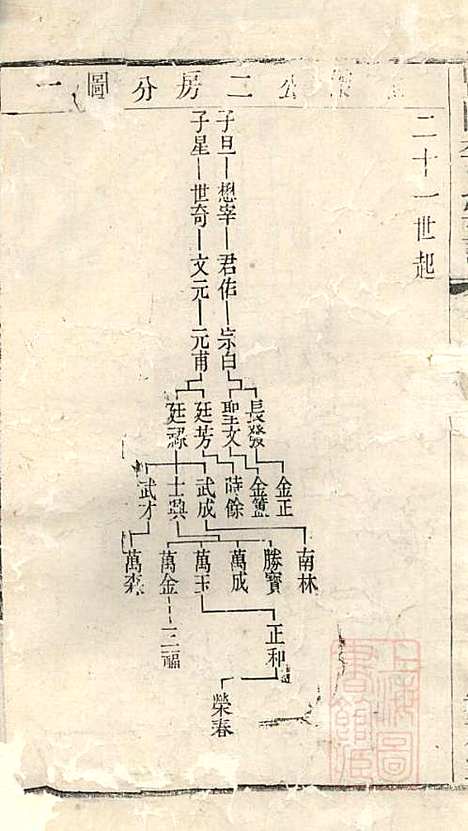 公二房分圖一
二十一世起
子旦 懋宰 君佐 宗白
子星 世奇 文元 元甫
長發 聖文 廷芳 廷祿
金正 金簋 時餘 武成 士興 武才
南林 勝寶 萬成 萬玉 萬金 萬森
正和 三福
榮春
上海圖書館藏